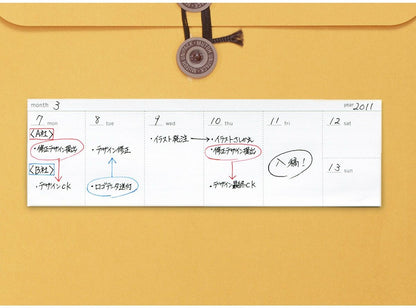 month 3
year 2011
7 mon
8 tue
9 wed
10 thu
11 fri
12 sat
13 sun
〈A社〉
・修正デザイン提出
〈B社〉
・デザインCK
・デザイン修正
・ロゴデータ送付
・イラスト発注
・イラストさしかえ
・修正デザイン提出
・デザイン最終CK
入稿!